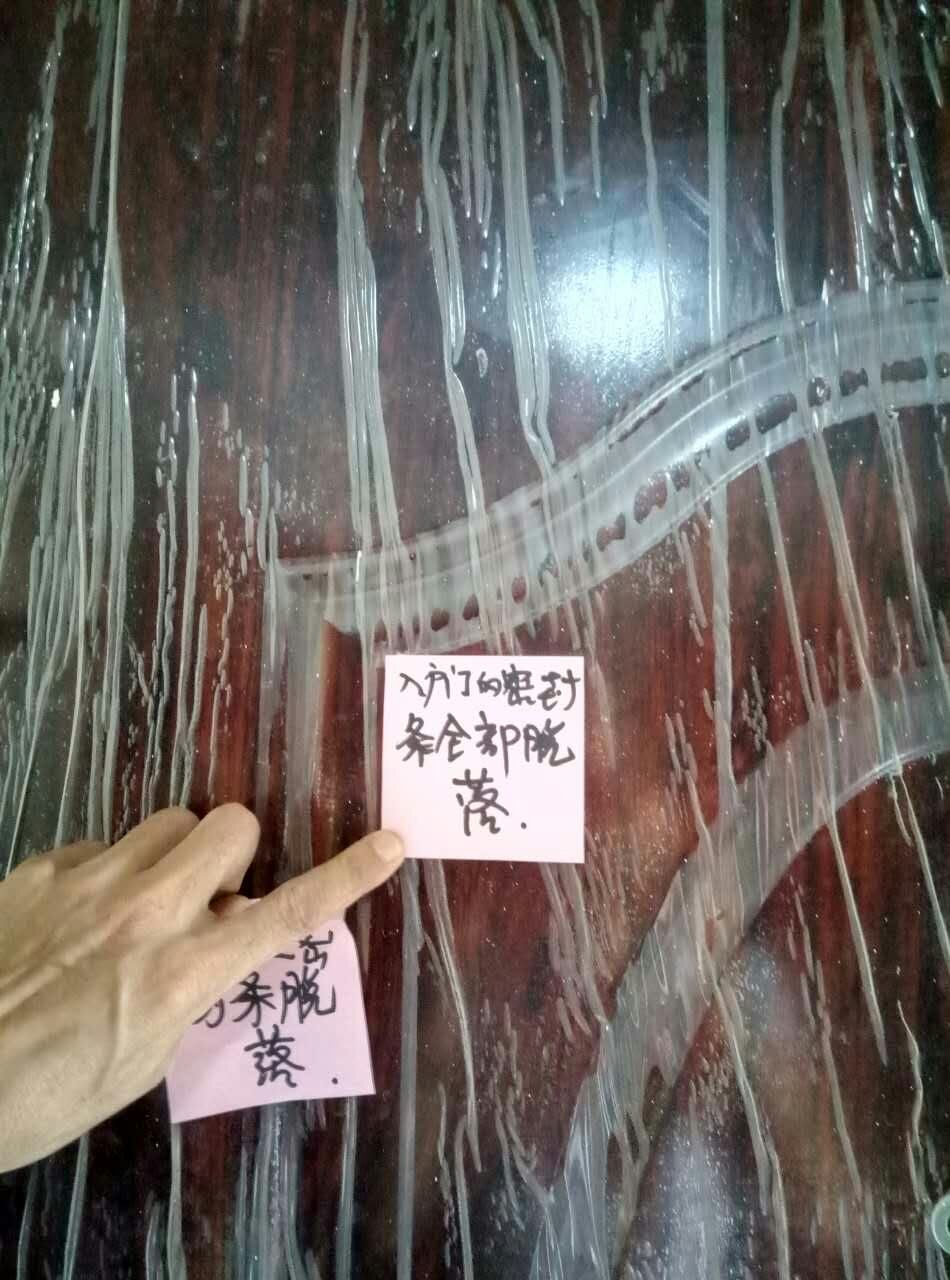 入户门的密封
条全部脱
落.
条脱
落.